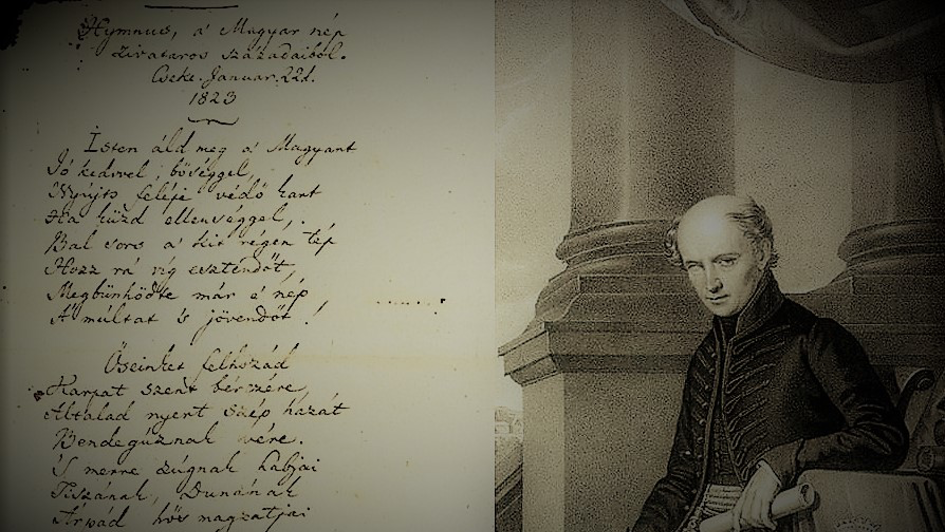 Hymnus, a' Magyar nép
zivataros századaiból.
Cseke. Januar. 22d.
1823
Isten áld meg a' Magyart
Jó kedvvel, bőséggel,
Nyújts feléje védő kart
Ha küzd ellenséggel,
Bal sors a' kit régen tép
Hozz rá víg esztendőt,
Megbűnhödte már e' nép
A' múltat 's jövendőt!
Őseinket felhozád
Kárpát szent bérczére,
Általad nyert szép hazát
Bendegúznak vére.
'S merre zúgnak habjai
Tiszának, Dunának
Árpád hős magzatjai